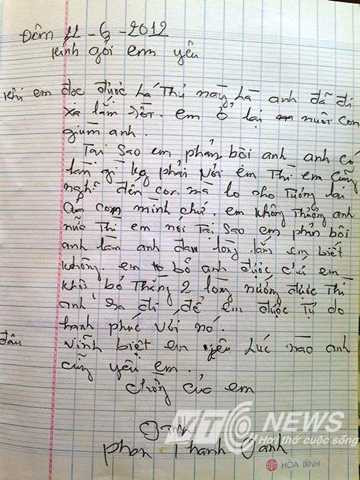 Đêm 11-6-2012
kính gởi em yêu
khi em đọc được Lá Thư này Là anh đã đi
xa lắm rồi. em ở lại nuôi con
giùm anh.
Tại sao em phản bồi anh anh có
làm gì kg phải với em Thì em cũng
nghĩ đến con mà lo cho Tương lai
của con mình chứ. em không Thương anh
nữa Thì em nói Tại sao em phản bồi
anh làm anh đau lòng lắm em biết
không. em bỏ anh được chứ em
khôi bỏ Thằng 2 long nuống được Thì
anh ra đi để em được Tự do
hạnh phúc với nó.
vĩnh biệt em yêu Lúc nào anh
đâu
cũng yêu em.
chồng của em
phan Thanh
VTC NEWS
Hơi thở cuộc sống
HÒA BÌNH